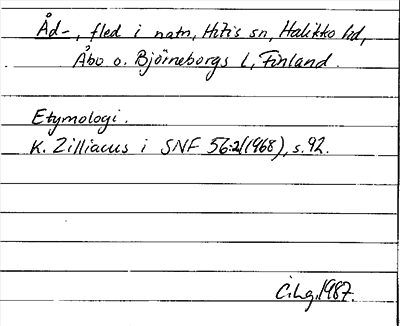 Åd-, fled i natn, Hitis sn, Halikko hd,
Åbo o. Björneborgs l, Finland.
Etymologi.
K. Zilliacus i SNF 56:2(1968), s. 92.
C.Lg. 1987.